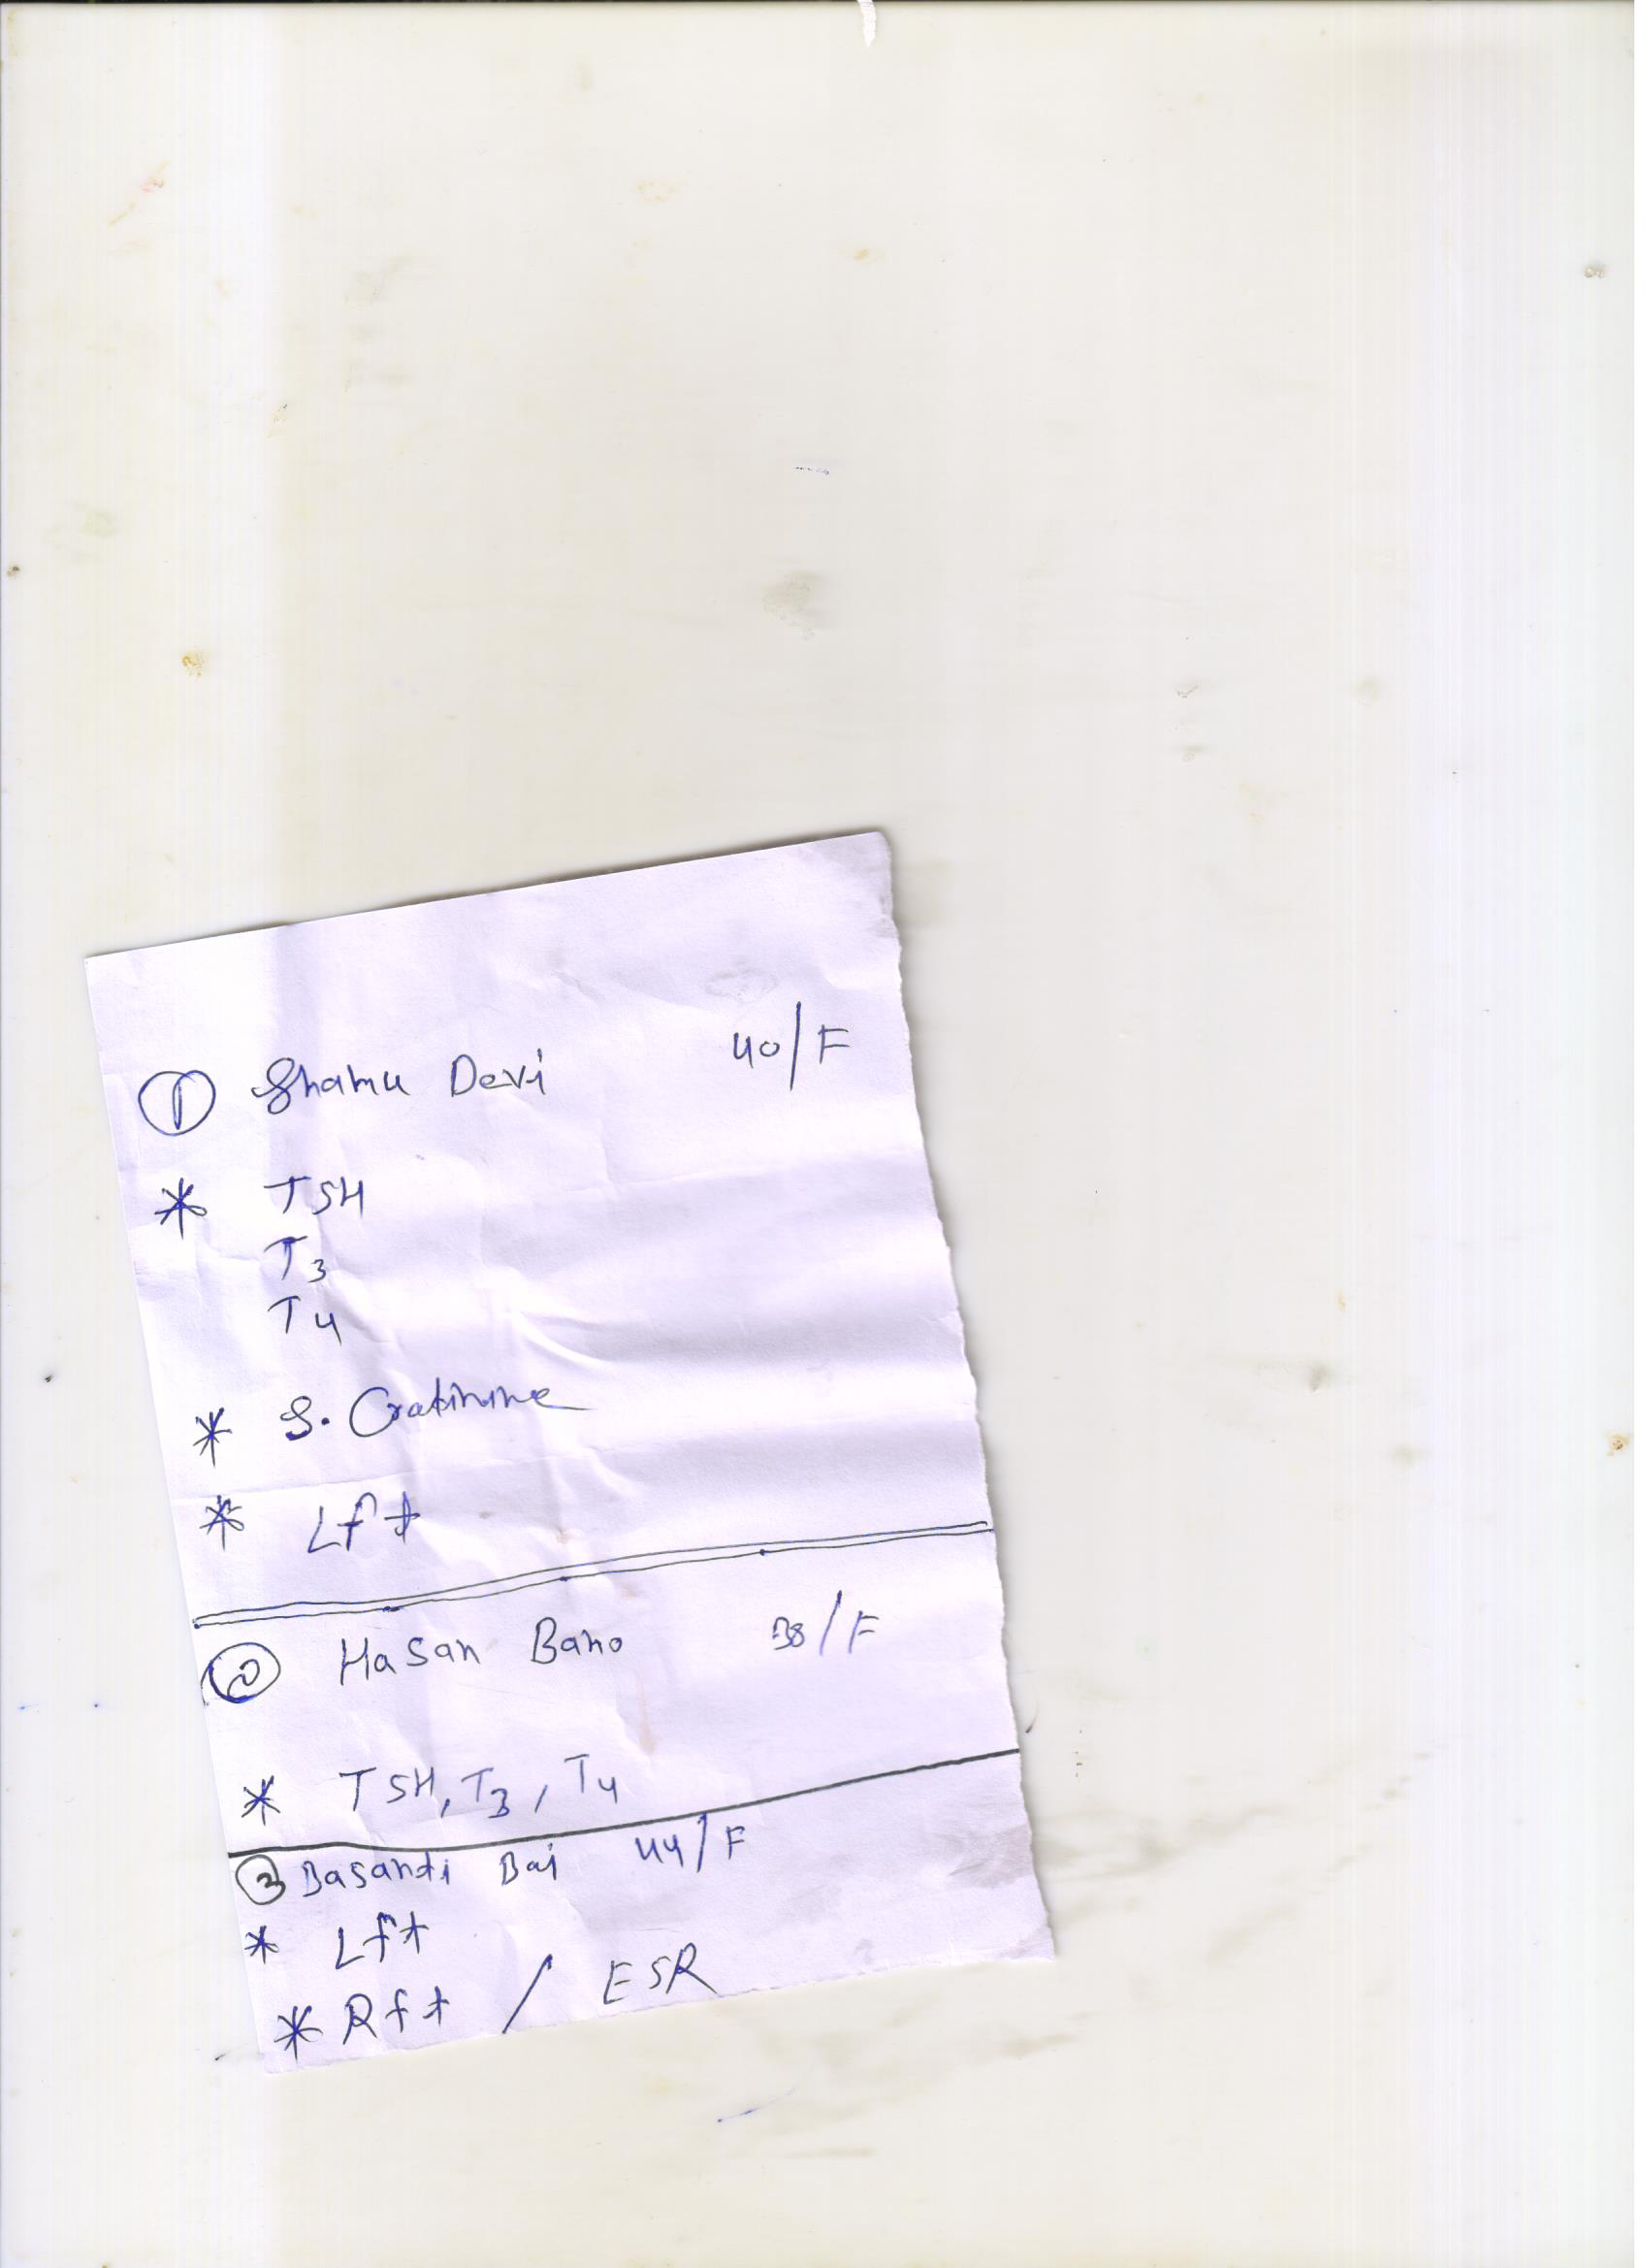 ① Shanu Devi 40/F
* TSH
T3
T4
* S. Cratinine
* Lft
② Hasan Bano 38/F
* TSH, T3, T4
③ Basanti Bai 44/F
* Lft
* Rft / ESR